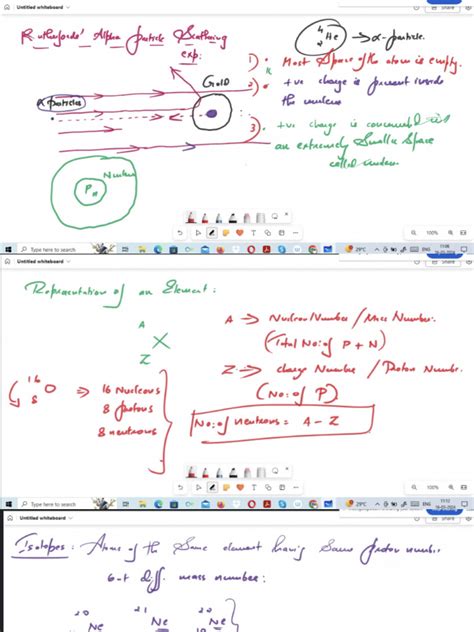 Untitled whiteboard
Share
Rutherfords' Alpha Particle Scattering exp:
4
2 He → α-particle.
1) • Most Space of the atom is empty.
Gold
2) • +ve charge is present inside
the nucleus
α particles
3) • +ve charge is concentrated
an extremely Smaller Space
called nucleus.
Nucleus
P
n
100%
Type here to search
29°C
ENG
11:08
16-03-2024
Untitled whiteboard
Share
Representation of an Element:
A
X
Z
A → Nucleon Number / Mass Number.
(Total No: of P + N)
Z → charge Number / Proton Number.
(No: of P)
16
8 O ⇒ 16 Nucleons
8 protons
8 neutrons
No: of neutrons = A - Z
100%
Type here to search
29°C
ENG
11:12
16-03-2024
Untitled whiteboard
Share
Isotopes: Atoms of the Same element having Same proton number
but diff. mass number:
20 Ne 21 Ne Ne